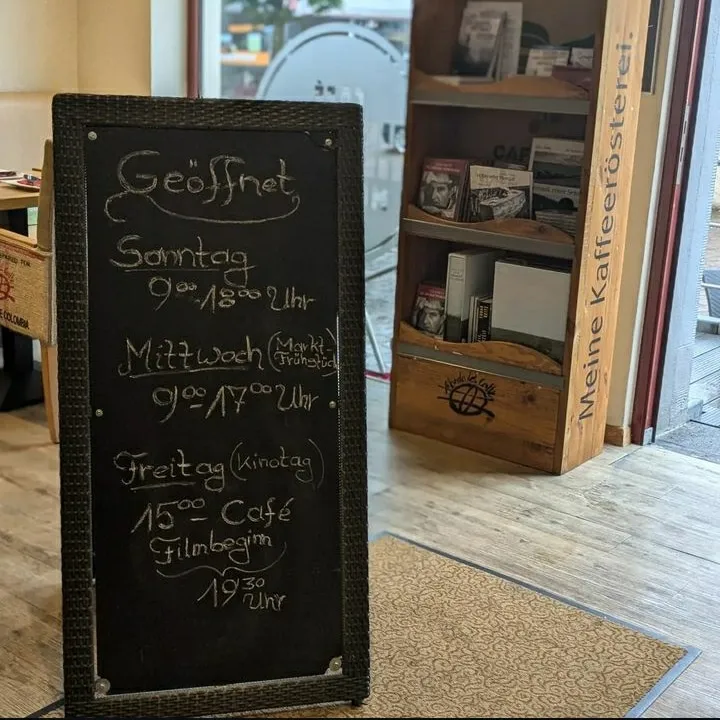 Geöffnet
Sonntag
9⁰⁰-18⁰⁰ Uhr
Mittwoch (Markt-Frühstück)
9⁰⁰-17⁰⁰ Uhr
Freitag (Kinotag)
15⁰⁰ - Café
Filmbeginn
19³⁰ Uhr
Meine Kaffeerösterei.
COLOMBIA